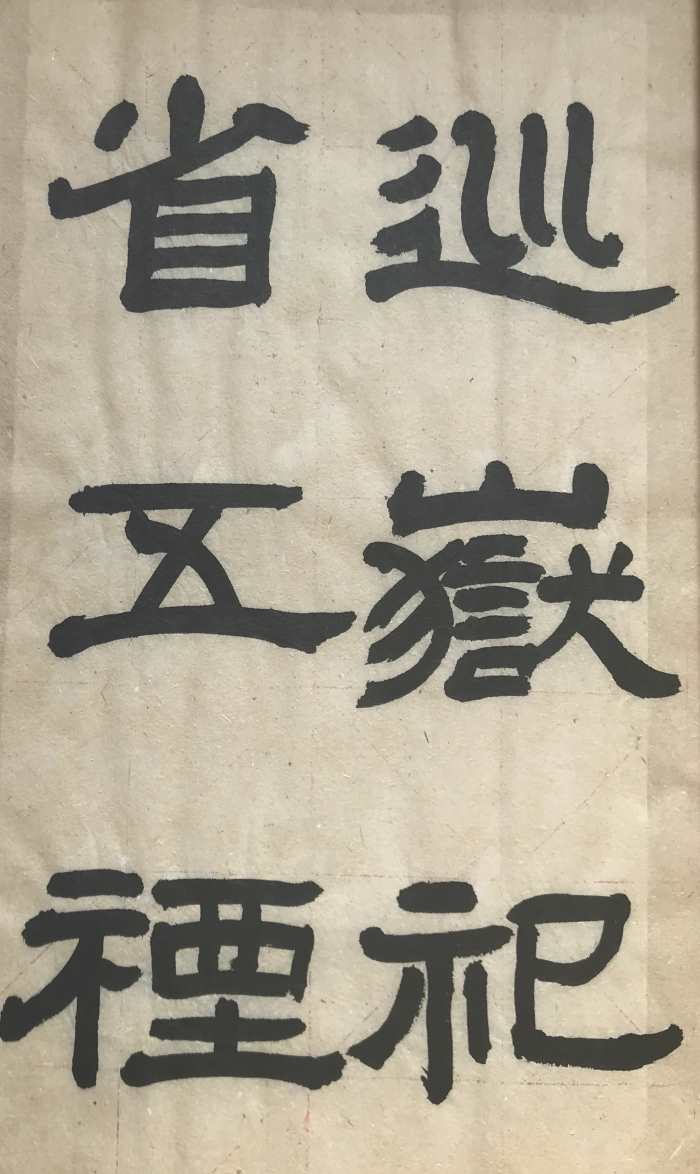 巡嶽祀
省五禋